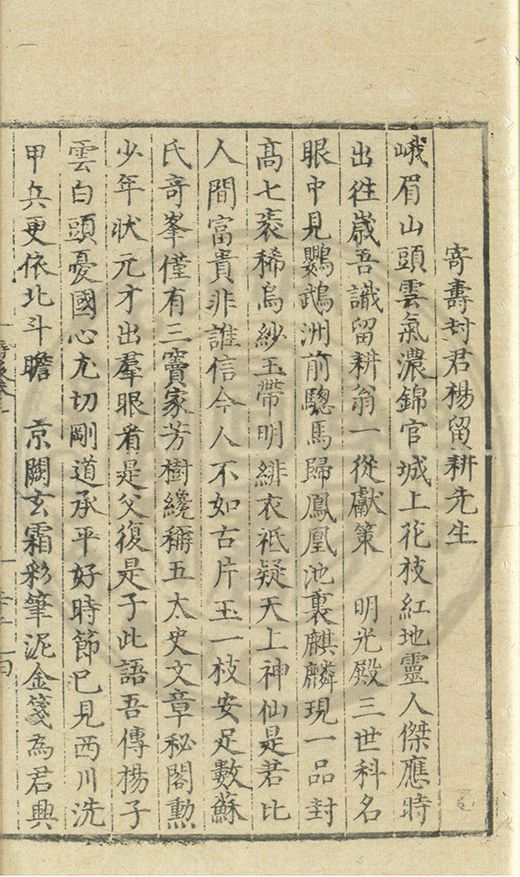 寄壽封君楊留耕先生
峨眉山頭雲氣濃錦官城上花枝紅地靈人傑應時
出徃歲吾識留耕翁一從獻策　明光殿三世科名
眼中見鸚鵡洲前驄馬歸鳳凰池裏麒麟現一品封
髙七袠稀烏紗玉帶明緋衣祗疑天上神仙是君比
人間富貴非誰信今人不如古片玉一枝安足數蘇
氏竒峯僅有三竇家芳樹纔稱五太史文章秘閣勲
少年狀元才出羣眼看是父復是子此語吾傳揚子
雲白頭憂國心尤切剛道承平好時節已見西川洗
甲兵更依北斗瞻　京闕玄霜彩筆泥金箋為君興